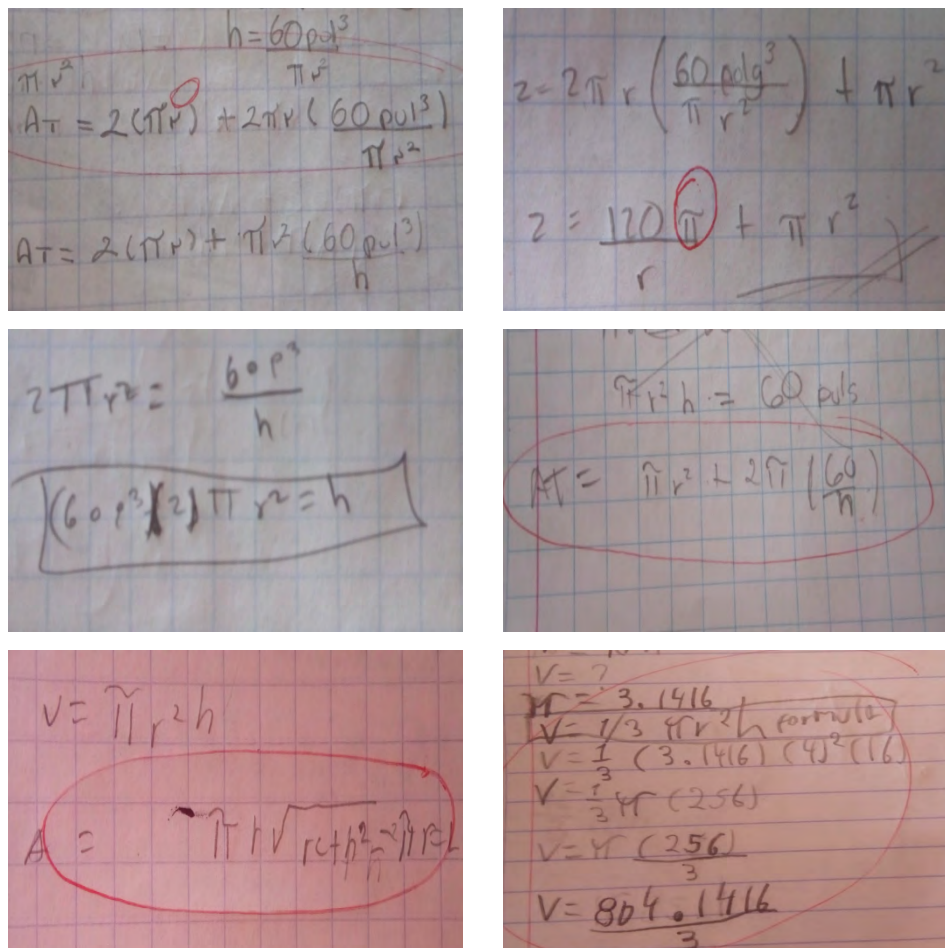 h = 60 pul³
π r²
π r²
AT = 2(πr) + 2πr ( 60 pul³ )
π r²
AT = 2(πr) + πr² (60 pul³)
h
z = 2π r ( 60 pulg³ ) + π r²
π r²
z = 120 π + π r²
r
2πr² = 60 p³
h
(60 p³)(2) π r² = h
πr² h = 60 puls
AT = π r² + 2π ( 60 )
h
V = π r² h
A = π r √
V = ?
π = 3.1416
V = 1/3 πr² h formula
V = 1 (3.1416) (4)² (16)
3
V = 1 π (256)
3
V = π (256)
3
V = 804.1416
3